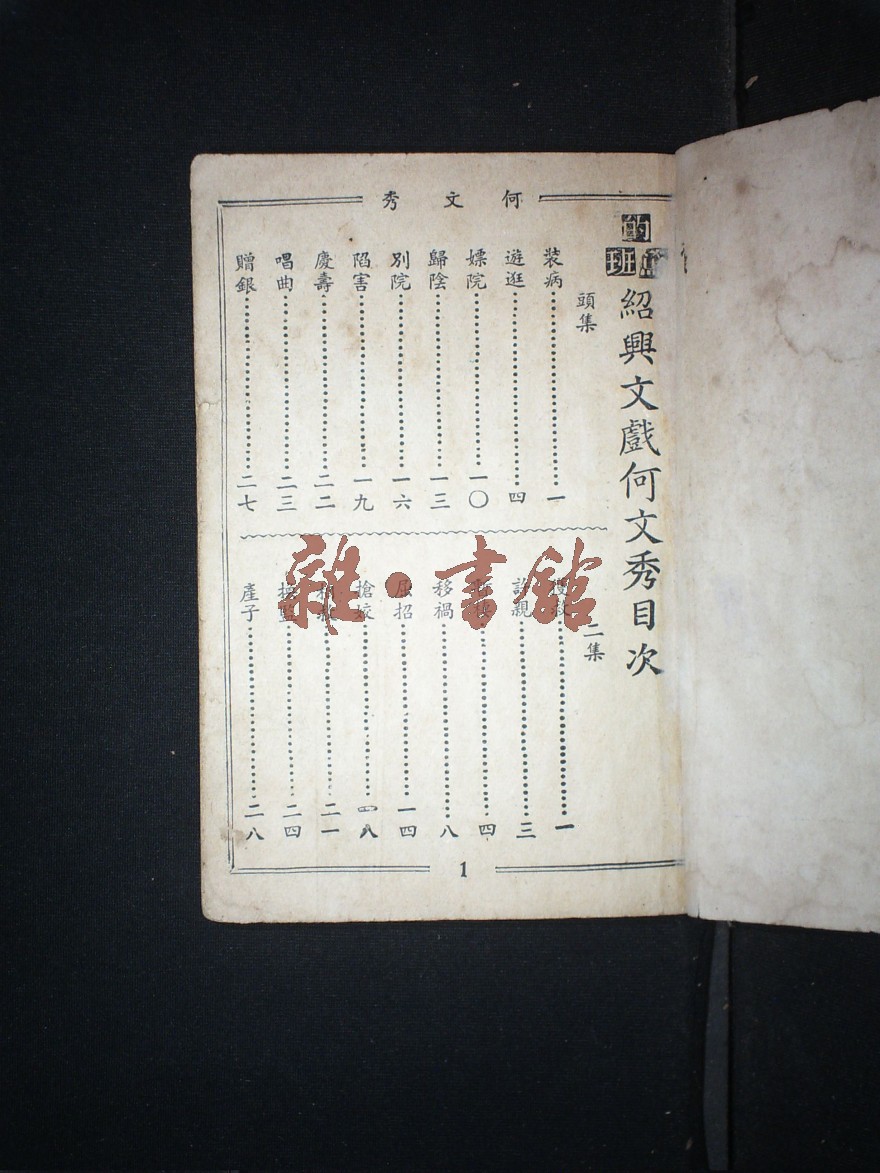 何文秀
的篤班
紹興文戲何文秀目次
頭集
裝病 一
遊逛 四
嫖院 一〇
歸陰 一三
別院 一六
陷害 一九
慶壽 二二
唱曲 二三
贈銀 二七
二集
一
許親 三
四
移禍 八
屈招 一四
搶姣 一八
二一
二四
產子 二八
1
雜·書館